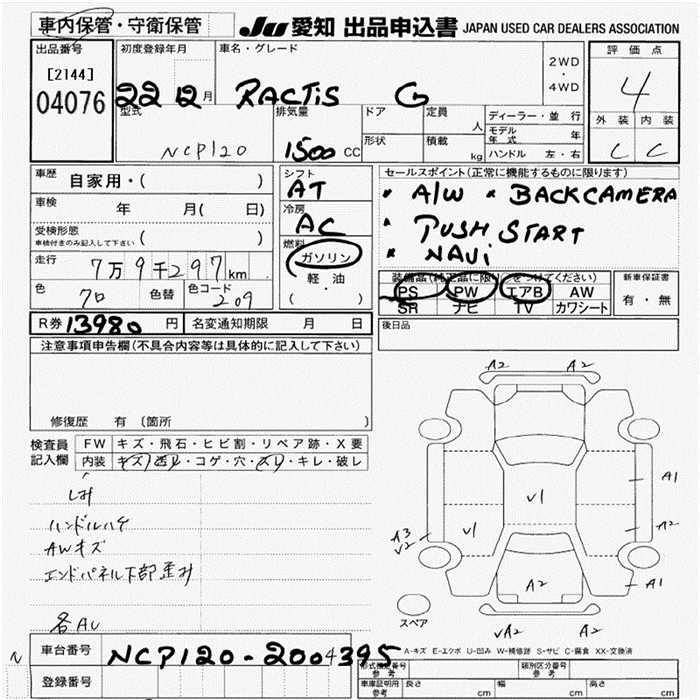 車内保管・守衛保管
JU 愛知 出品申込書 JAPAN USED CAR DEALERS ASSOCIATION
出品番号
[2144]
04076
初度登録年月
22 12月
車名・グレード
RACTIS G
2WD
・
4WD
評価点
4
外装 内装
C C
型式
NCP120
排気量
1500 CC
ドア
形状
定員
人
積載
kg
ディーラー・並行
モデル年式 年
ハンドル 左・右
車歴
自家用・( )
車検
年 月( 日)
受検形態
車検付きのみ記入して下さい ( )
走行
7万9千297km
色
70
色替
色コード
209
シフト
AT
冷房
AC
燃料
ガソリン
軽油
( )
セールスポイント(正常に機能するものに限ります)
* A/W * BACK CAMERA
* PUSH START
* NAVi
装備品(純正品に限り○をつけてください)
PS PW エアB AW
SR ナビ TV カワシート
新車保証書
有・無
後日品
R券 13980 円
名変通知期限 月 日
注意事項申告欄(不具合内容等は具体的に記入して下さい)
修復歴 有 〔箇所 〕
検査員記入欄
FW キズ・飛石・ヒビ割・リペア跡・X要
内装 キズ・汚れ・コゲ・穴・スレ・キレ・破レ
シミ
ハンドルハゲ
AWキズ
エンドパネル下部歪み
各AU
A2 A2
V1
A1
V1
A2
A3
V2
A2
A1
スペア
VA2 A2
A-キズ E-エクボ U-凹み W-補修跡 S-サビ C-腐食 XX-交換済
N
車台番号
NCP120-2004395
登録番号
形式指定番号
参考
類別区分番号
参考
車庫証明用
参考
長さ cm
幅 cm
高さ cm